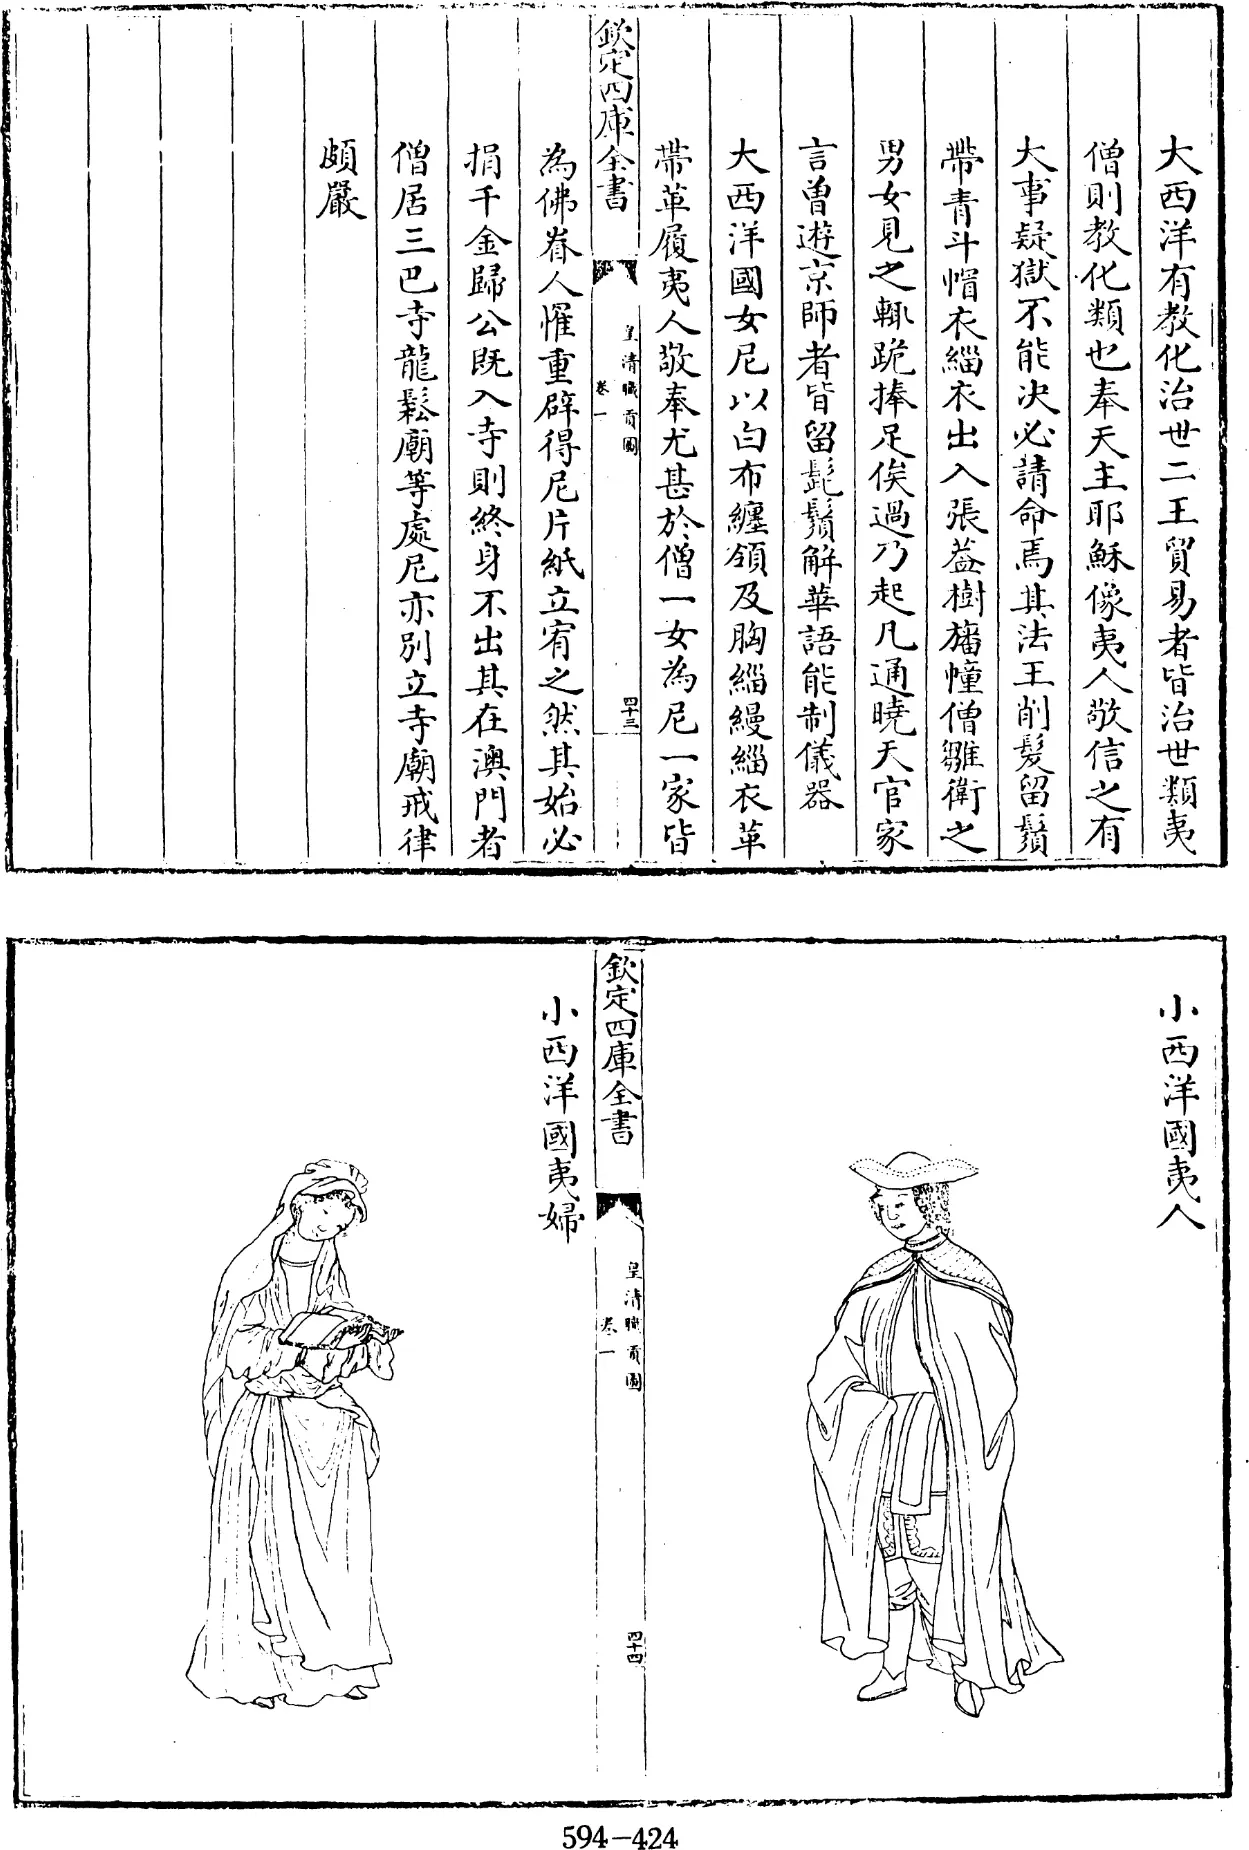 大西洋有教化治世二王貿易者皆治世類夷
僧則教化類也奉天主耶穌像夷人敬信之有
大事疑獄不能决必請命焉其法王削髮留鬚
帶青斗帽衣緇衣出入張葢樹旛幢僧雛衛之
男女見之輒跪捧足俟過乃起凡通曉天官家
言曾遊京師者皆留髭鬚解華語能制儀器
大西洋國女尼以白布纏領及胸緇縵緇衣革
帶革履夷人敬奉尤甚於僧一女為尼一家皆
欽定四庫全書
皇清職貢圖
卷一
四十三
為佛眷人懼重辟得尼片紙立宥之然其始必
捐千金歸公既入寺則終身不出其在澳門者
僧居三巴寺龍鬆廟等處尼亦别立寺廟戒律
頗嚴
小西洋國夷人
欽定四庫全書
皇清職貢圖
卷一
四十四
小西洋國夷婦
594-424